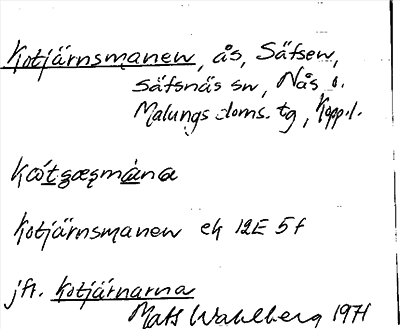 Kotjärnsmanen, ås, Säfsen,
Säfsnäs sn, Nås o.
Malungs doms. tg, Kopp.l.
Kotjärnsmanen ek 12E 5f
jfr. Kotjärnarna
Mats Wahlberg 1971